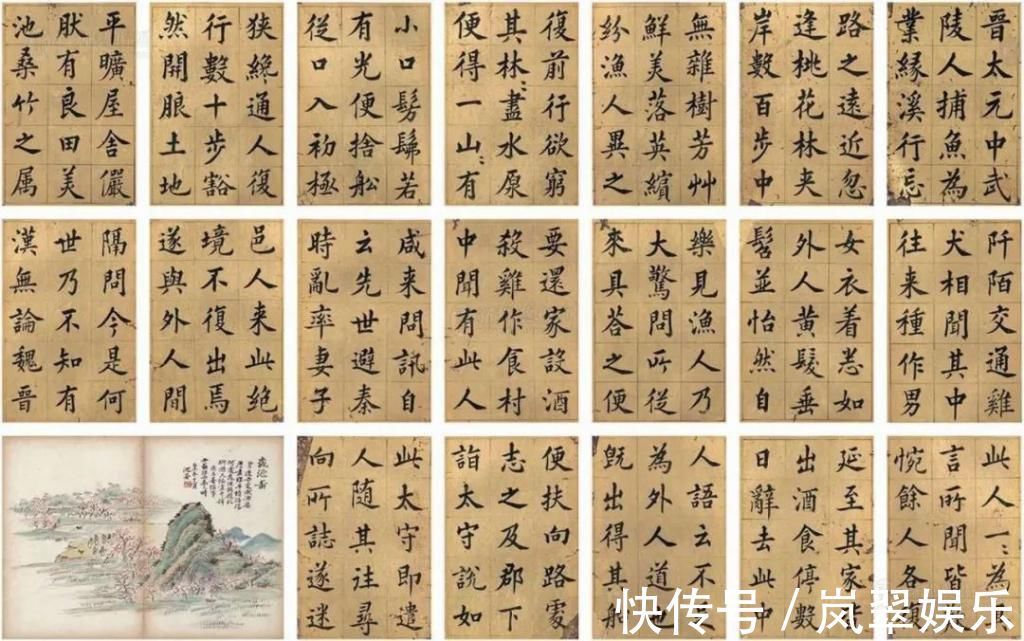 晉太元中武
陵人捕魚為
業縁溪行忘
路之遠近忽
逢桃花林夹
岸數百步中
無雜樹芳艸
鮮美落英繽
紛漁人異之
復前行欲窮
其林〻盡水原
便得一山〻有
小口髣髴若
有光便捨船
從口入初極
狹纔通人復
行數十步豁
然開朗土地
平曠屋舍儼
肰有良田美
池桑竹之属
阡陌交通雞
犬相聞其中
往来種作男
女衣着悉如
外人黄髮垂
髫並怡然自
樂見漁人乃
大驚問所從
來具荅之便
要還家設酒
殺雞作食村
中聞有此人
咸来問訊自
云先世避秦
時亂率妻子
邑人来此絶
境不復出焉
遂與外人間
隔問今是何
世乃不知有
漢無論魏晉
此人一〻為
言所聞皆
惋餘人各
延至其家皆
出酒食停數
日辭去此中
人語云不
為外人道
既出得其船
便扶向路處
志之及郡下
詣太守說如
此太守即遣
人隨其往尋
向所誌遂迷
快传号 / 岚翠娱乐